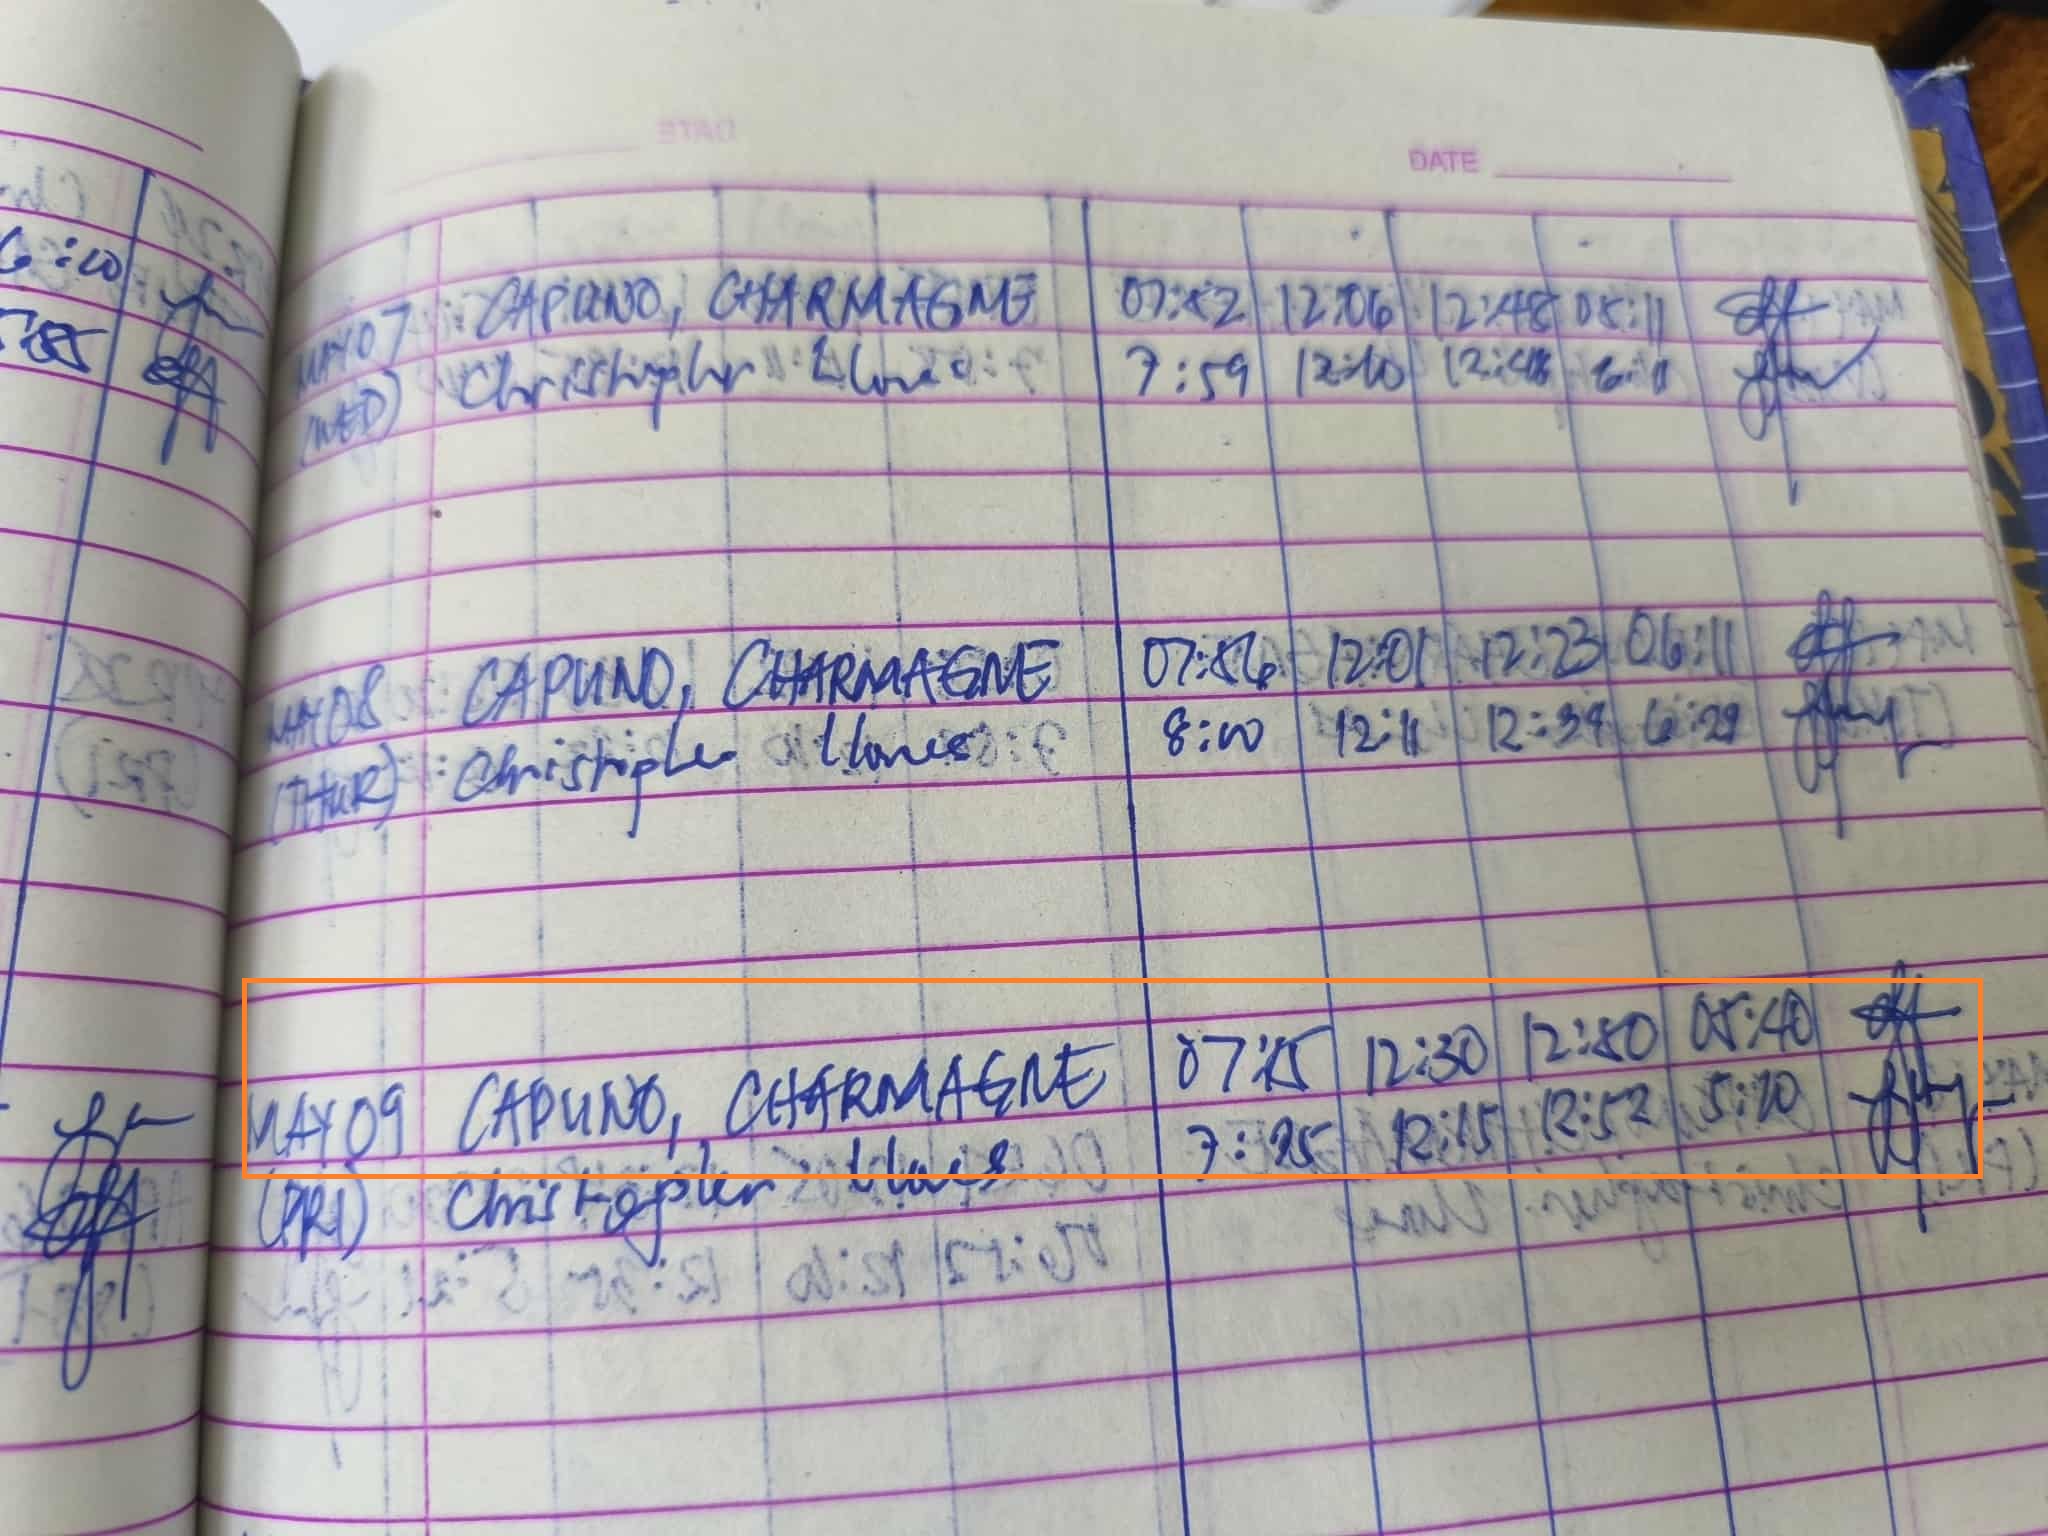 DATE
6:00
MAY 07 CAPUNO, CHARMAGNE 07:52 12:06 12:48 05:11
(WED) Christopher Llones 7:59 12:10 12:48 6:11
MAY 08 CAPUNO, CHARMAGNE 07:56 12:01 12:23 06:11
(THUR) Christopher Llones 8:00 12:11 12:39 6:29
MAY 09 CAPUNO, CHARMAGNE 07:15 12:30 12:50 05:40
(FRI) Christopher Llones 7:25 12:15 12:52 5:20